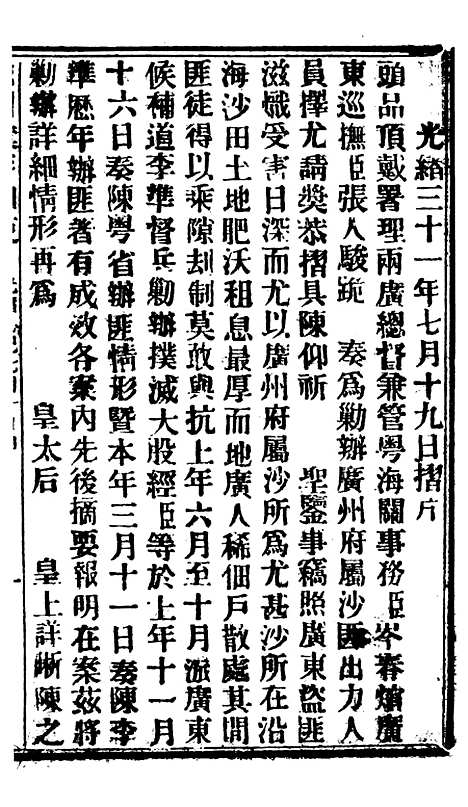 光緒三十一年七月十九日摺片
頭品頂戴署理兩廣總督兼管粵海關事務臣岑春煊廣
東巡撫臣張人駿跪　奏爲勦辦廣州府屬沙匪出力人
員擇尤請獎恭摺具陳仰祈　聖鑒事竊照廣東盜匪
滋熾受害日深而尤以廣州府屬沙所爲尤甚沙所在沿
海沙田土地肥沃租息最厚而地廣人稀佃戶散處其間
匪徒得以乘隙刦制莫敢與抗上年六月至十月派廣東
候補道李準督兵勦辦撲滅大股經臣等於上年十一月
十六日奏陳粵省辦匪情形暨本年三月十一日奏陳李
準歷年辦匪著有成效各案內先後摘要報明在案茲將
勦辦詳細情形再爲　皇太后　皇上詳晰陳之